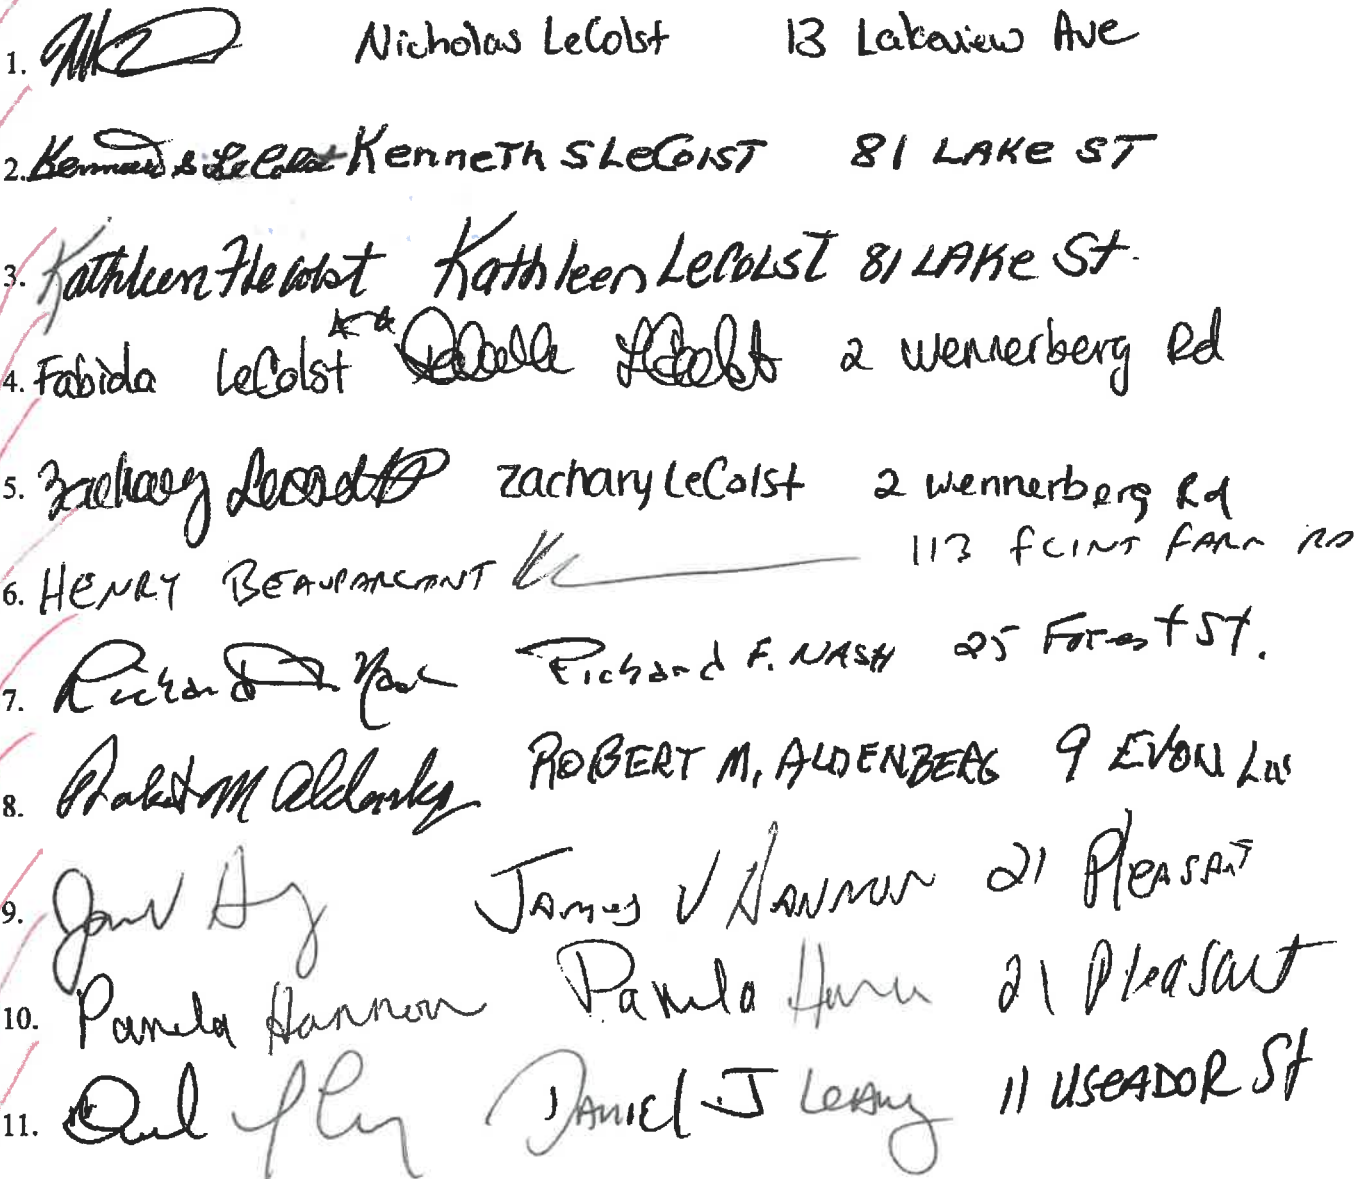 1. Nicholas LeColst 13 Lakeview Ave
2. Kenneth S LeColst Kenneth S LeCoIST 81 LAKe ST
3. Kathleen F LeColst Kathleen LeCOLST 81 LAKe St.
4. Fabida LeColst LeColst 2 Wennerberg Rd
5. Zachary LeColst Zachary LeColst 2 Wennerberg Rd
6. HENRY BEAUPARLANT 113 FLINT FARM RD
7. Richard Nash Richard F. NASH 25 Forest St.
8. Robert M Aldenberg ROBERT M. ALDENBERG 9 EVON LN
9. James V HANNON 21 PleASANT
10. Pamela Hannon Pamela Hannon 21 Pleasant
11. DANIEl J Leahy 11 St